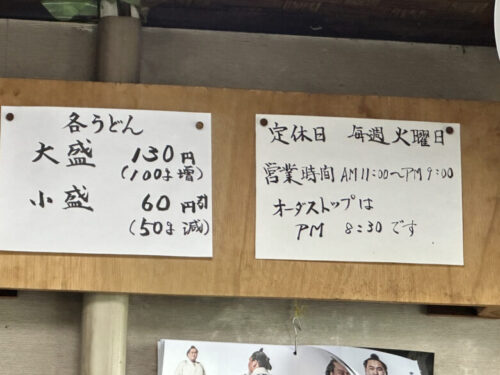 各うどん
大盛 130円
(100g増)
小盛 60円引
(50g減)
定休日 毎週火曜日
営業時間 AM11:00〜PM9:00
オーダストップは
PM 8:30です